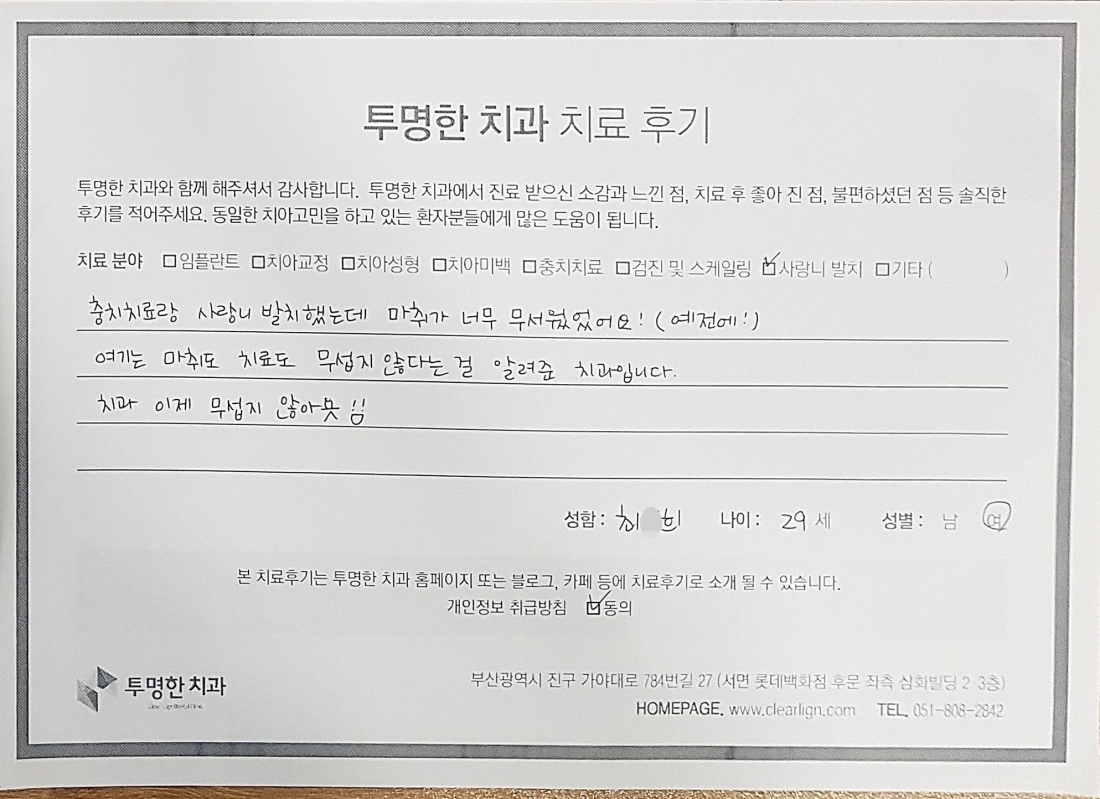 투명한 치과 치료 후기
투명한 치과와 함께 해주셔서 감사합니다. 투명한 치과에서 진료 받으신 소감과 느낀 점, 치료 후 좋아 진 점, 불편하셨던 점 등 솔직한
후기를 적어주세요. 동일한 치아고민을 하고 있는 환자분들에게 많은 도움이 됩니다.
치료 분야 □임플란트 □치아교정 □치아성형 □치아미백 □충치치료 □검진 및 스케일링 ☑사랑니 발치 □기타 ( )
충치치료랑 사랑니 발치했는데 마취가 너무 무서웠었어요! (예전에!)
여기는 마취도 치료도 무섭지 않다는 걸 알려준 치과입니다.
치과 이제 무섭지 않아욧!!
성함 : 최 희 나이 : 29 세 성별 : 남 여
본 치료후기는 투명한 치과 홈페이지 또는 블로그, 카페 등에 치료후기로 소개 될 수 있습니다.
개인정보 취급방침 ☑동의
투명한 치과
부산광역시 진구 가야대로 784번길 27 (서면 롯데백화점 후문 좌측 삼화빌딩 2·3층)
HOMEPAGE. www.clearlign.com TEL. 051-808-2842